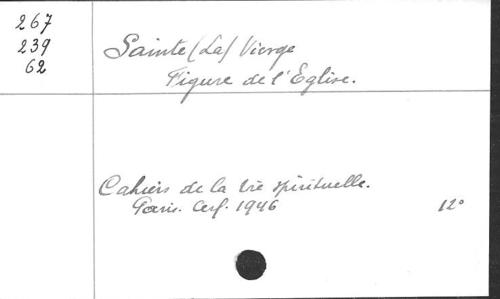 267
239
62
Sainte (La) Vierge
Figure de l'Eglise.
Cahiers de la Vie spirituelle.
Paris. Cerf. 1946
12°